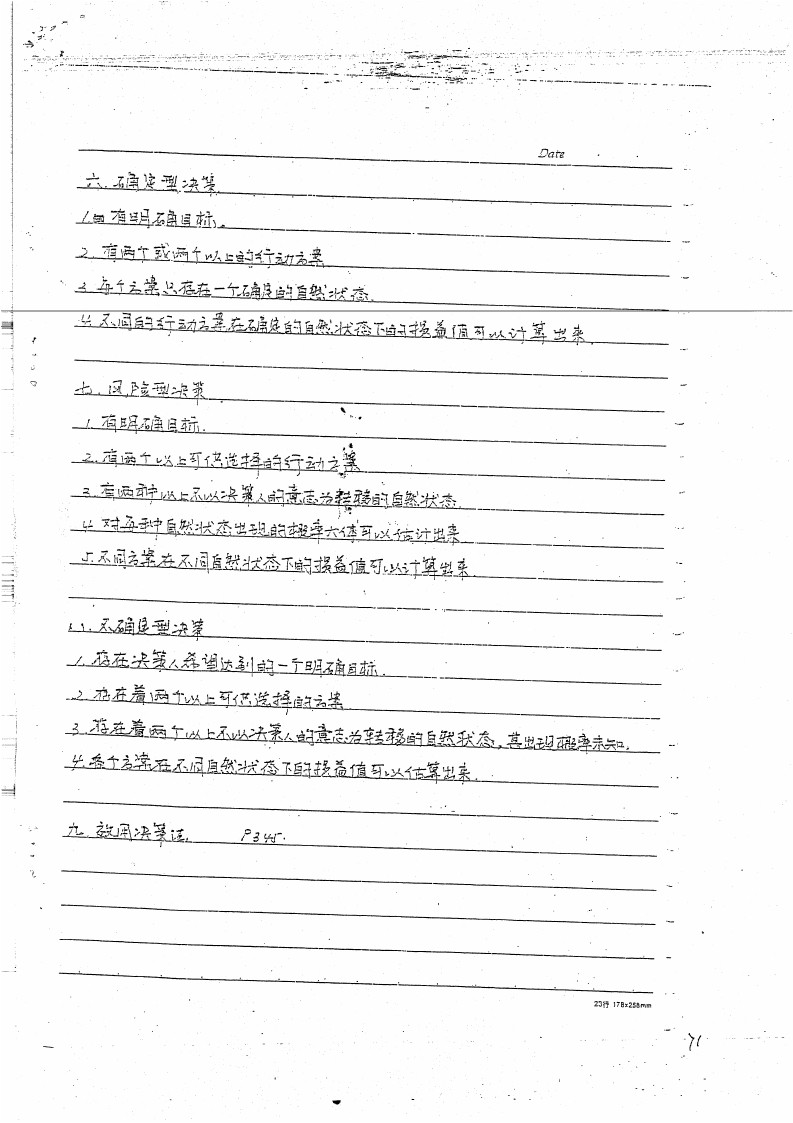 Date
六、确定型决策
1. 有明确目标。
2. 有两个或两个以上的行动方案
3. 每个方案只存在一个确定的自然状态.
4. 不同的行动方案在确定的自然状态下的损益值可以计算出来.
七、风险型决策
1. 有明确目标.
2. 有两个以上可供选择的行动方案
3. 有两种以上不以决策人的意志为转移的自然状态.
4. 对每种自然状态出现的概率大体可以估计出来
5. 不同方案在不同自然状态下的损益值可以计算出来.
八、不确定型决策
1. 存在决策人希望达到的一个明确目标.
2. 存在着两个以上可供选择的方案
3. 存在着两个以上不以决策人的意志为转移的自然状态,其出现概率未知.
4. 各个方案在不同自然状态下的损益值可以估算出来.
九、效用决策法. P345.
23行 178x258mm
71